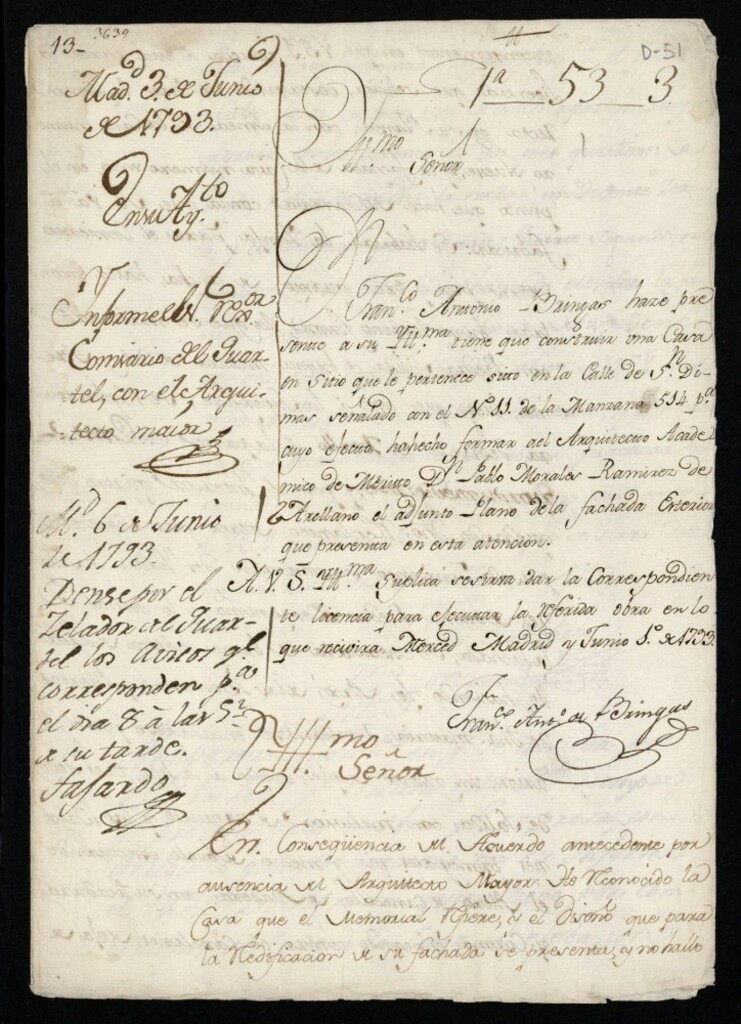 13-
3639
D-51
1ª 53 3
Mad.d 3. de Junio
de 1793.
En su Ay.to
Informe el S.r Reg.or
Comisario del Quar-
tel, con el Arqui-
tecto maior
M.d 6 de Junio
de 1793.
Dense por el
Zelador del Quar-
tel los avisos q.e
corresponden p.a
el dia 8 à las 5
de su tarde.
Fajardo
Yll.mo
Señor
Fran.co Antonio Bringas haze pre
sente a su Yll.ma tiene que construir una Casa
en Sitio que le pertenece sito en la Calle de S.n Di-
mas señalado con el N.o 11. de la Manzana 514 p.a
cuyo efecto ha hecho formar ael Arquitecto Acade
mico de Merito D.n Pablo Morales Ramirez de
Arellano el adjunto Plano de la fachada Exterior
que presenta en esta atencion.
A V. S. Yll.ma Suplica se sirva dar la Correspondien
te licencia para ejecutar la referida obra en lo
que recivira Merced Madrid y Junio 1.o de 1793.
Fran.co Ant.o de Bringas
Yll.mo
Señor
En Conseqüencia del Acuerdo antecedente por
ausencia del Arquitecto Mayor: He Reconocido la
Casa que el Memorial refiere, y el Diseño que para
la Redificacion de su fachada se presenta, y no hallo